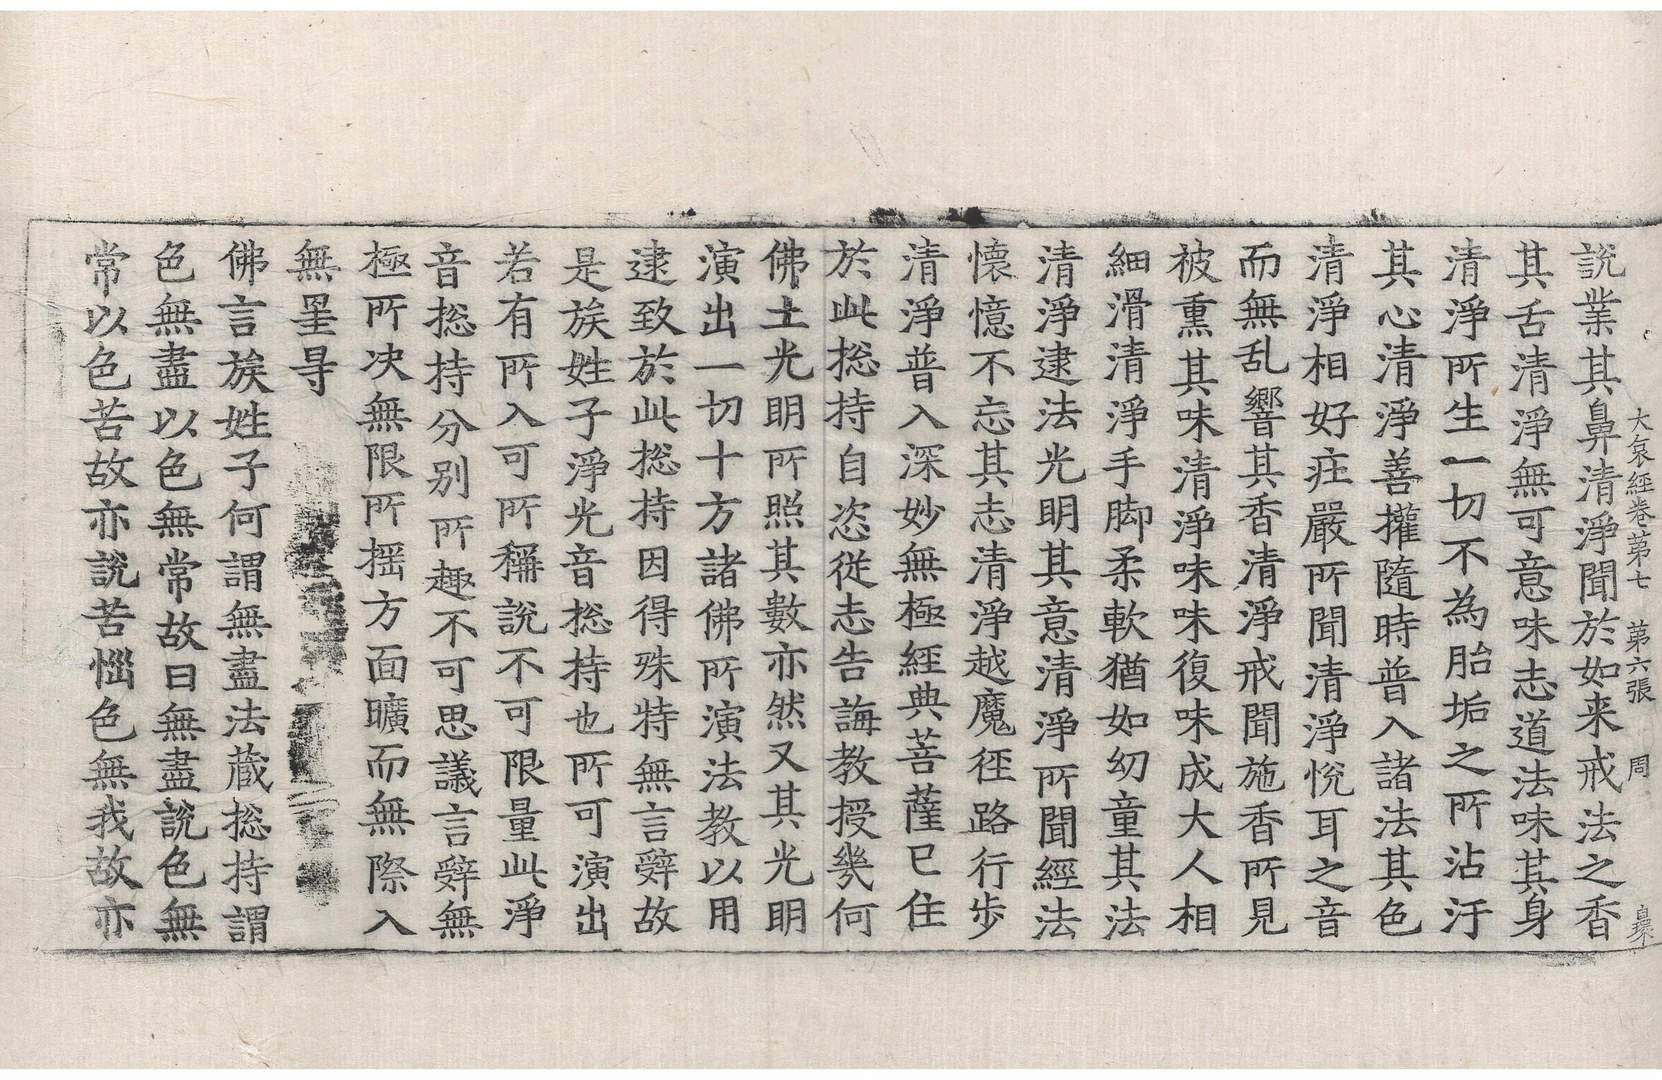 大哀經卷第七　第六張　周
說業其鼻清淨聞於如来戒法之香
其舌清淨無可意味志道法味其身
清淨所生一切不為胎垢之所沾汙
其心清淨善權隨時普入諸法其色
清淨相好庄嚴所聞清淨悅耳之音
而無乱響其香清淨戒聞施香所見
被熏其味清淨味味復味成大人相
細滑清淨手脚柔軟猶如幼童其法
清淨逮法光明其意清淨所聞經法
懷憶不忘其志清淨越魔徑路行步
清淨普入深妙無極經典菩薩已住
於此捴持自恣從志告誨教授幾何
佛土光明所照其數亦然又其光明
演出一切十方諸佛所演法教以用
逮致於此捴持因得殊特無言辤故
是族姓子淨光音捴持也所可演出
若有所入可所稱說不可限量此淨
音捴持分別所趣不可思議言辤無
極所决無限所揺方面曠而無際入
無罣㝵
佛言族姓子何謂無盡法蔵捴持謂
色無盡以色無常故曰無盡說色無
常以色苦故亦說苦惱色無我故亦